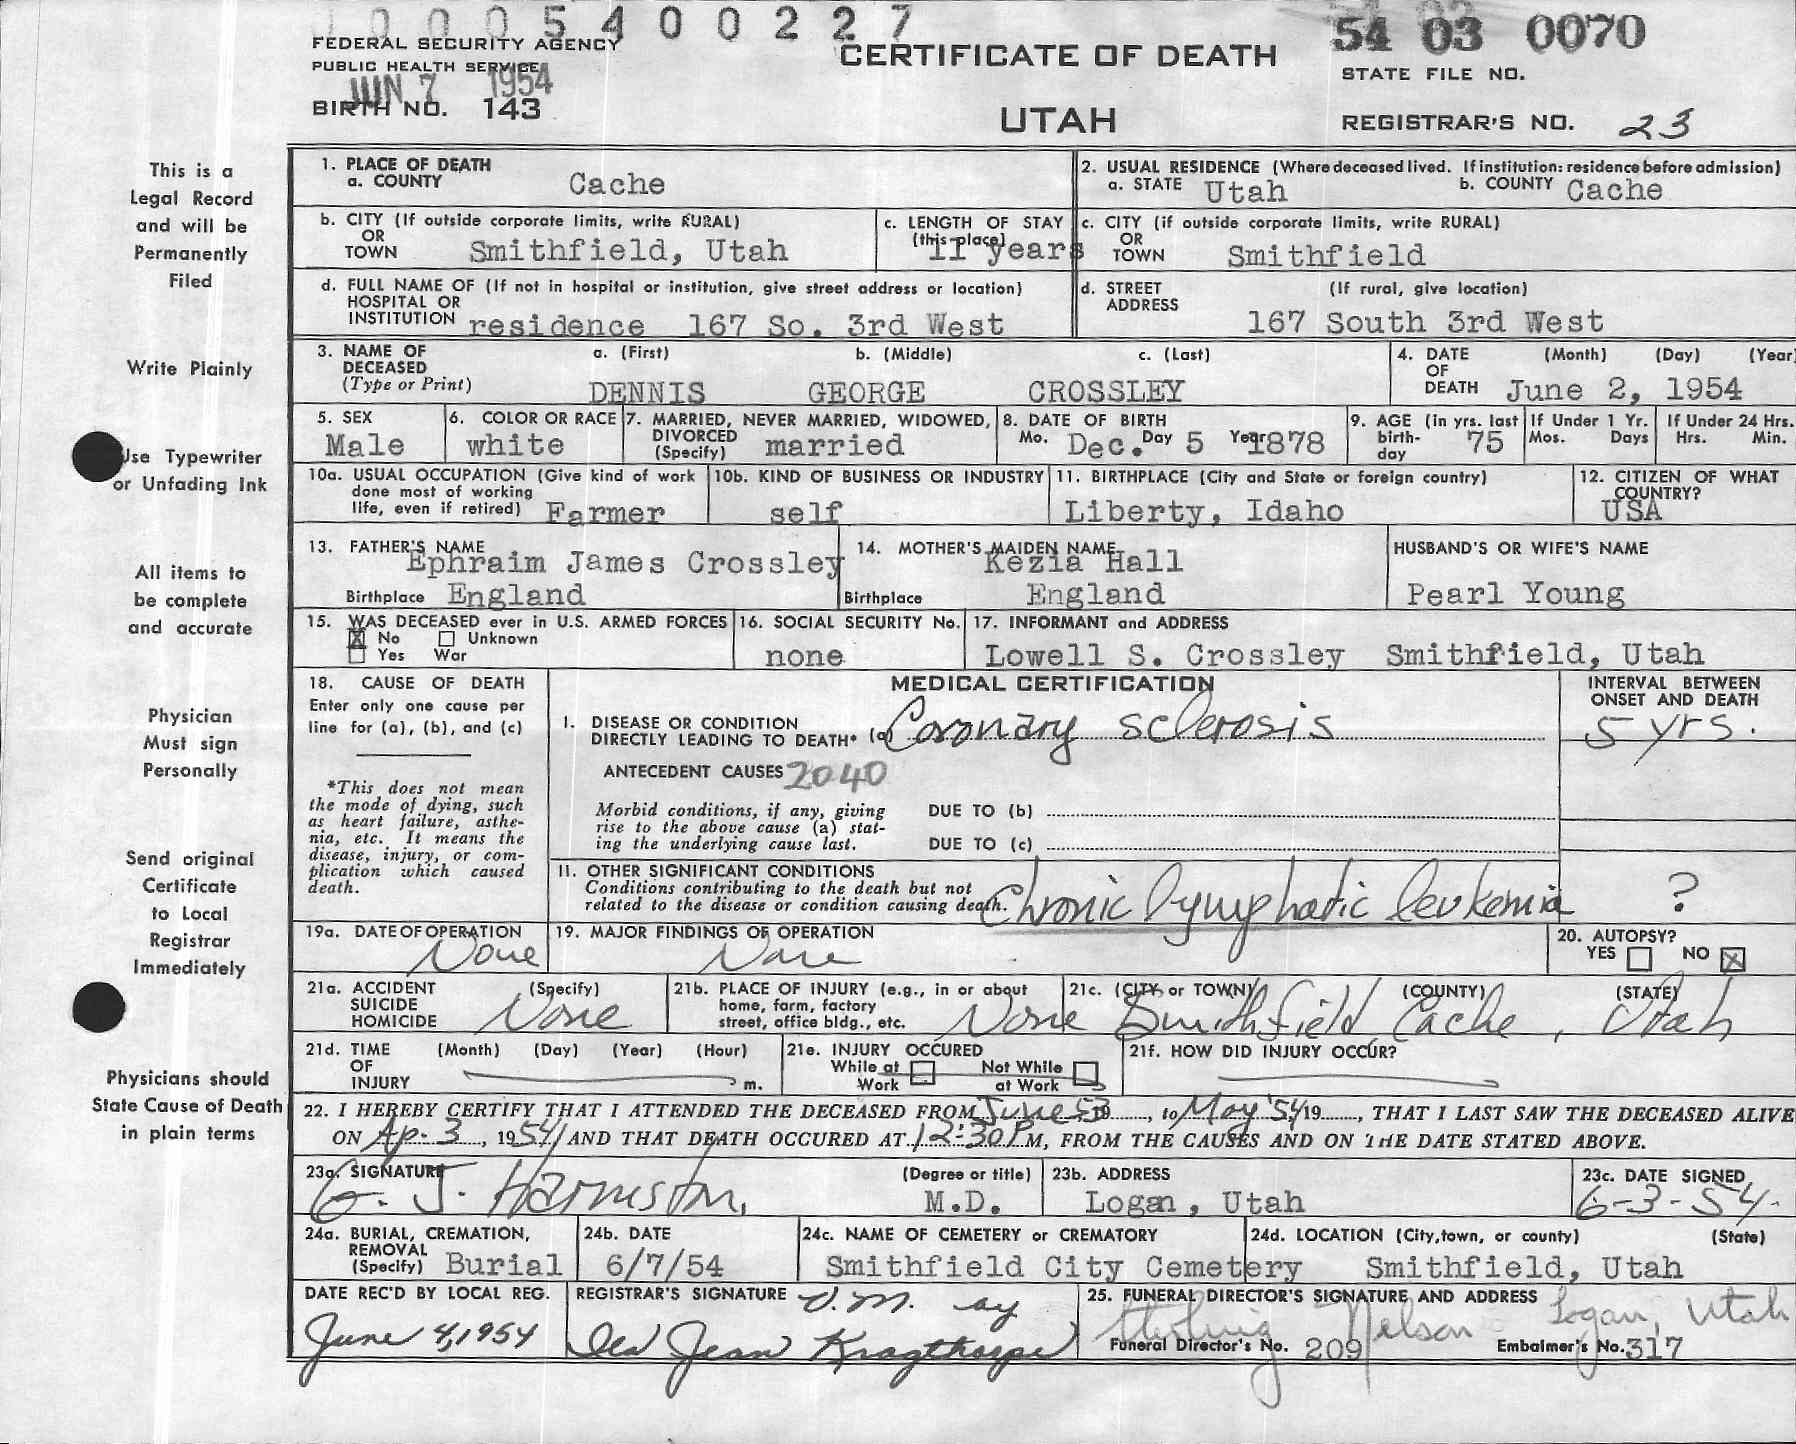 0 0 0 5 4 0 0 2 2 7
54 03 0070
FEDERAL SECURITY AGENCY
PUBLIC HEALTH SERVICE
JUN 7 1954
BIRTH NO. 143
CERTIFICATE OF DEATH
UTAH
STATE FILE NO.
REGISTRAR'S NO. 23
This is a
Legal Record
and will be
Permanently
Filed
Write Plainly
Use Typewriter
or Unfading Ink
All items to
be complete
and accurate
Physician
Must sign
Personally
Send original
Certificate
to Local
Registrar
Immediately
Physicians should
State Cause of Death
in plain terms
1. PLACE OF DEATH
a. COUNTY Cache
2. USUAL RESIDENCE (Where deceased lived. If institution: residence before admission)
a. STATE Utah b. COUNTY Cache
b. CITY (If outside corporate limits, write RURAL)
OR
TOWN Smithfield, Utah
c. LENGTH OF STAY
(this place) 11 years
c. CITY (if outside corporate limits, write RURAL)
OR
TOWN Smithfield
d. FULL NAME OF (If not in hospital or institution, give street address or location)
HOSPITAL OR
INSTITUTION residence 167 So. 3rd West
d. STREET (If rural, give location)
ADDRESS
167 South 3rd West
3. NAME OF a. (First) b. (Middle) c. (Last)
DECEASED
(Type or Print) DENNIS GEORGE CROSSLEY
4. DATE (Month) (Day) (Year
OF
DEATH June 2, 1954
5. SEX
Male
6. COLOR OR RACE
white
7. MARRIED, NEVER MARRIED, WIDOWED,
DIVORCED
(Specify) married
8. DATE OF BIRTH
Mo. Dec. Day 5 Year 1878
9. AGE (in yrs. last
birth-
day 75
If Under 1 Yr.
Mos. Days
If Under 24 Hrs.
Hrs. Min.
10a. USUAL OCCUPATION (Give kind of work
done most of working
life, even if retired) Farmer
10b. KIND OF BUSINESS OR INDUSTRY
self
11. BIRTHPLACE (City and State or foreign country)
Liberty, Idaho
12. CITIZEN OF WHAT
COUNTRY?
USA
13. FATHER'S NAME
Ephraim James Crossley
Birthplace England
14. MOTHER'S MAIDEN NAME
Kezia Hall
Birthplace England
HUSBAND'S OR WIFE'S NAME
Pearl Young
15. WAS DECEASED ever in U.S. ARMED FORCES
X No Unknown
Yes War
16. SOCIAL SECURITY No.
none
17. INFORMANT and ADDRESS
Lowell S. Crossley Smithfield, Utah
18. CAUSE OF DEATH
Enter only one cause per
line for (a), (b), and (c)
*This does not mean
the mode of dying, such
as heart failure, asthe-
nia, etc. It means the
disease, injury, or com-
plication which caused
death.
MEDICAL CERTIFICATION
INTERVAL BETWEEN
ONSET AND DEATH
I. DISEASE OR CONDITION
DIRECTLY LEADING TO DEATH* (a) Coronary sclerosis 5 yrs.
ANTECEDENT CAUSES 2040
Morbid conditions, if any, giving
rise to the above cause (a) stat-
ing the underlying cause last.
DUE TO (b)
DUE TO (c)
11. OTHER SIGNIFICANT CONDITIONS
Conditions contributing to the death but not
related to the disease or condition causing death. Chronic lymphatic leukemia ?
19a. DATE OF OPERATION
None
19. MAJOR FINDINGS OF OPERATION
None
20. AUTOPSY?
YES NO X
21a. ACCIDENT (Specify)
SUICIDE
HOMICIDE None
21b. PLACE OF INJURY (e.g., in or about
home, farm, factory
street, office bldg., etc. None
21c. (CITY or TOWN) (COUNTY) (STATE)
Smithfield, Cache, Utah
21d. TIME (Month) (Day) (Year) (Hour)
OF
INJURY m.
21e. INJURY OCCURED
While at Not While
Work at Work
21f. HOW DID INJURY OCCUR?
22. I HEREBY CERTIFY THAT I ATTENDED THE DECEASED FROM June 53 19, to May '54 19, THAT I LAST SAW THE DECEASED ALIVE
ON Ap. 3, 1954, AND THAT DEATH OCCURED AT 12:30 P M, FROM THE CAUSES AND ON THE DATE STATED ABOVE.
23a. SIGNATURE (Degree or title)
G. J. Harmston, M.D.
23b. ADDRESS
Logan, Utah
23c. DATE SIGNED
6-3-54.
24a. BURIAL, CREMATION,
REMOVAL
(Specify) Burial
24b. DATE
6/7/54
24c. NAME OF CEMETERY or CREMATORY
Smithfield City Cemetery
24d. LOCATION (City, town, or county) (State)
Smithfield, Utah
DATE REC'D BY LOCAL REG.
June 4, 1954
REGISTRAR'S SIGNATURE
Jean Kragthorpe
25. FUNERAL DIRECTOR'S SIGNATURE AND ADDRESS
Nelson Logan, Utah
Funeral Director's No. 209 Embalmer's No. 317